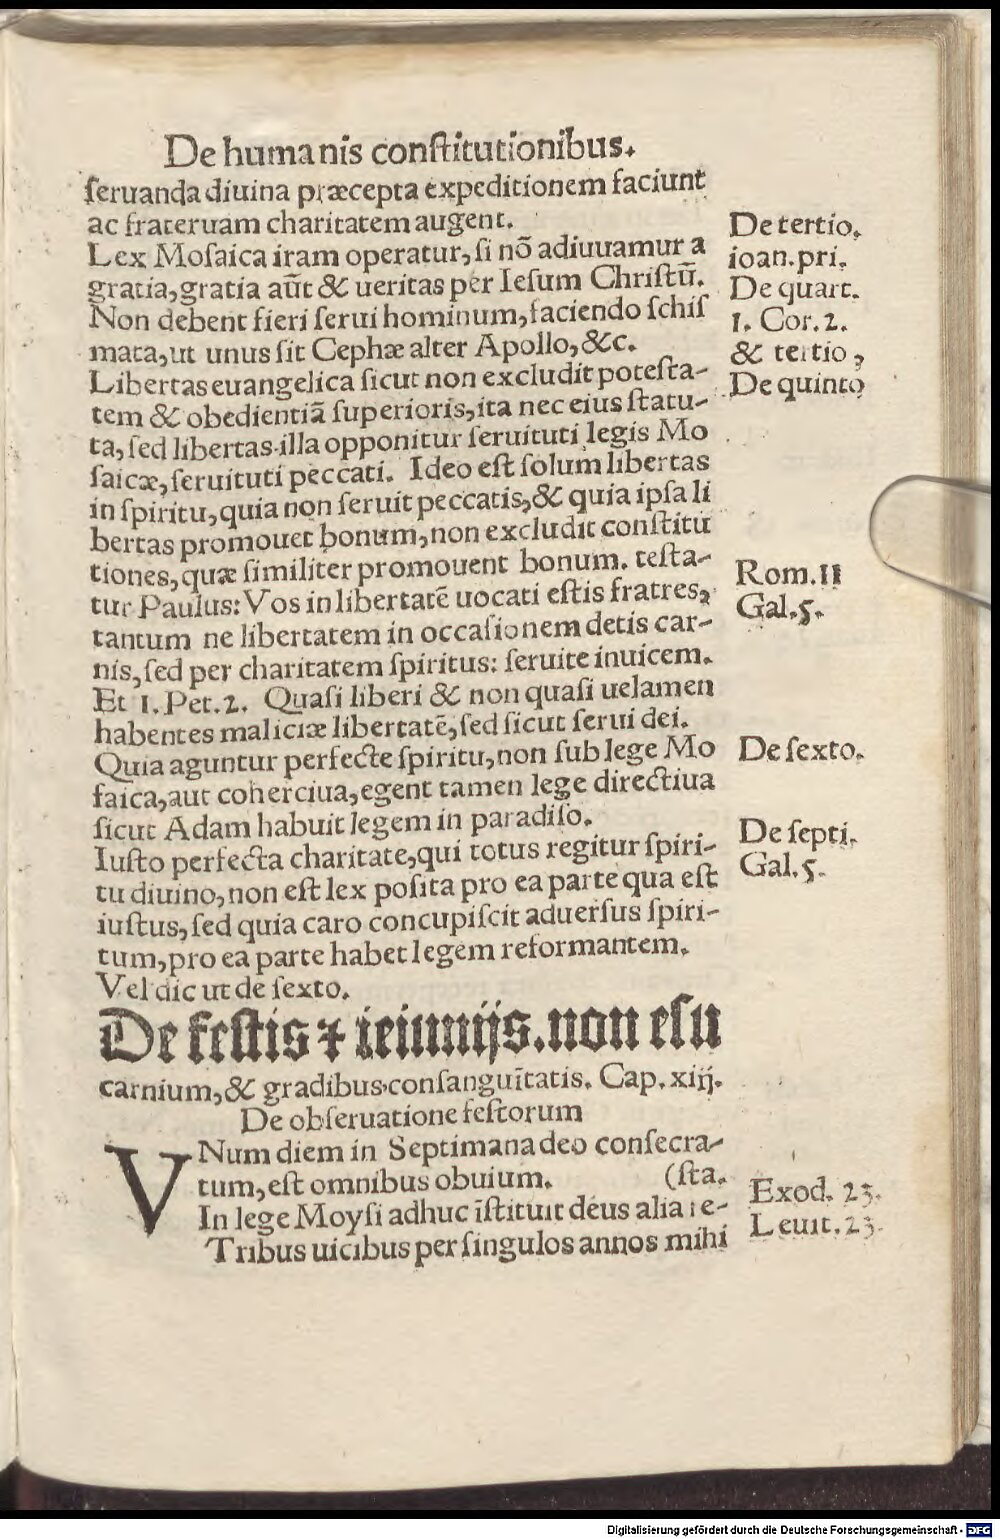 De humanis conſtitutionibus.
ſeruanda diuina præcepta expeditionem faciunt
ac frateruam charitatem augent.
De tertio.
Lex Moſaica iram operatur, ſi nō adiuuamur a
ioan. pri.
gratia, gratia aūt & ueritas per Ieſum Chriſtū.
De quart.
Non debent fieri ſerui hominum, faciendo ſchiſ
1. Cor. 2.
mata, ut unus ſit Cephæ alter Apollo, &c.
& tertio,
Libertas euangelica ſicut non excludit poteſta-
De quinto
tem & obedientiā ſuperioris, ita nec eius ſtatu-
ta, ſed libertas illa opponitur ſeruituti legis Mo
ſaicæ, ſeruituti peccati. Ideo eſt ſolum libertas
in ſpiritu, quia non ſeruit peccatis, & quia ipſa li
bertas promouet bonum, non excludit conſtitu
tiones, quæ ſimiliter promouent bonum. teſta-
Rom. 11
tur Paulus: Vos in libertatē uocati eſtis fratres,
Gal. 5.
tantum ne libertatem in occaſionem detis car-
nis, ſed per charitatem ſpiritus: ſeruite inuicem.
Et 1. Pet. 2. Quaſi liberi & non quaſi uelamen
habentes maliciæ libertatē, ſed ſicut ſerui dei.
Quia aguntur perfecte ſpiritu, non ſub lege Mo
De ſexto.
ſaica, aut coherciua, egent tamen lege directiua
ſicut Adam habuit legem in paradiſo.
De ſepti.
Iuſto perfecta charitate, qui totus regitur ſpiri-
Gal. 5.
tu diuino, non eſt lex poſita pro ea parte qua eſt
iuſtus, ſed quia caro concupiſcit aduerſus ſpiri-
tum, pro ea parte habet legem reformantem.
Vel dic ut de ſexto.
De feſtis ⁊ ieiunijs. non eſu
carnium, & gradibus conſanguītatis. Cap. xiij.
De obſeruatione feſtorum
VNum diem in Septimana deo conſecra-
tum, eſt omnibus obuium. (ſta.
Exod. 23.
In lege Moyſi adhuc īſtituit deus alia fe-
Leuit. 23.
Tribus uicibus per ſingulos annos mihi
Digitalisierung gefördert durch die Deutsche Forschungsgemeinschaft - DFG